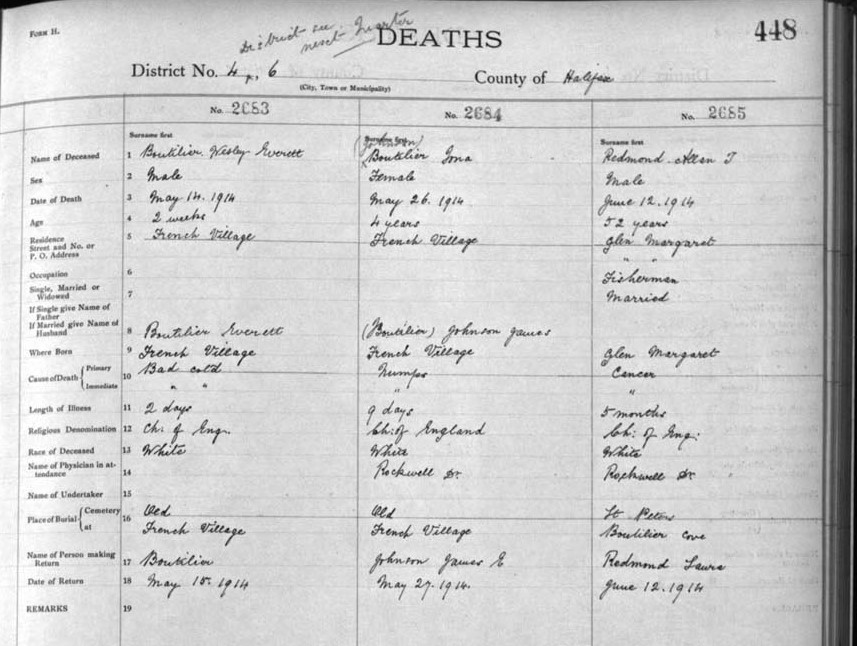 FORM H.
District see
next Quarter
DEATHS
448
District No. 4, 6
County of Halifax
(City, Town or Municipality)
No. 2683
No. 2684
No. 2685
Surname first
Surname first
Surname first
(Johnson)
Name of Deceased 1 Boutilier Wesley Everett
Boutilier Iona
Redmond Allen J
Sex 2 Male
Female
Male
Date of Death 3 May 14. 1914
May 26. 1914
June 12. 1914
Age 4 2 weeks
4 years
52 years
Residence
Street and No. or
P. O. Address
5 French Village
French Village
Glen Margaret
" "
Occupation 6
Fisherman
Single, Married or
Widowed
7
Married
If Single give Name of
Father
If Married give Name of
Husband
8 Boutilier Everett
(Boutilier) Johnson James
Where Born 9 French Village
French Village
Glen Margaret
Cause of Death { Primary
Immediate
10 Bad cold
" "
Mumps
"
Cancer
"
Length of Illness 11 2 days
9 days
5 months
Religious Denomination 12 Ch: of Eng.
Ch: of England
Ch: of Eng:
Race of Deceased 13 White
White
White
Name of Physician in at-
tendance
14
Rockwell Dr.
Rockwell Dr.
Name of Undertaker 15
Place of Burial { Cemetery
at
16 Old
French Village
Old
French Village
St Peters
Boutilier Cove
Name of Person making
Return
17 Boutilier
Johnson James E
Redmond Laura
Date of Return 18 May 15. 1914
May 27. 1914.
June 12. 1914
REMARKS 19